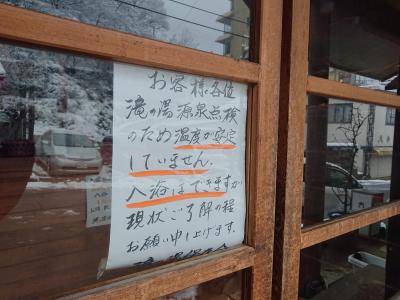 お客様各位
滝の湯源泉点検
のため温度が安定
していません。
入浴はできますが
現状ご了解の程
お願い申し上げます。